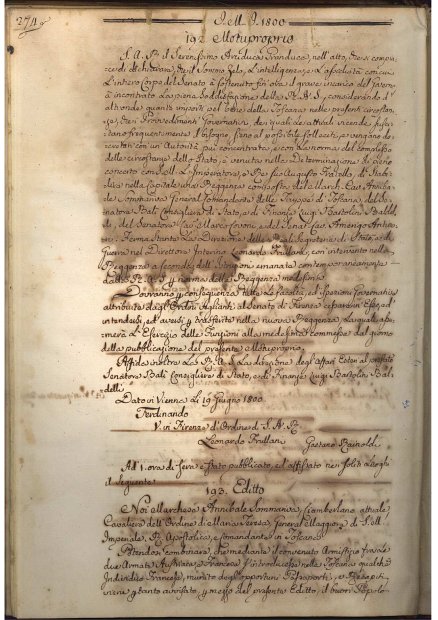 274
Dell' 1800
192. Motuproprio
S. A. R. il Serenissimo Arciduca Granduca, nell'atto, che si compiace di dichiarare, che il Sommo Zelo, L'intelligenza, e L'assiduità con cui
L'intero Corpo del Senato à sostenuto fin'ora il grave incarico del Governo,
à incontrato La piena Sodisfazione della R. A. S., considerando d'
altronde quanto importi nel bene della Toscana nelle presenti circostan-
ze, che i Provvedimenti Governativi dei quali le attuali vicende susci-
tano frequentemente il bisogno, siano al possibile solleciti, e vengano de-
cretati con un'Autorità più concentrata, e con La norma del complesso
delle circostanze dello Stato, è venuta nella Determinazione di pieno
concerto con S. M. L'Imperatore, e Re suo Augusto Fratello, di Stabi-
lire nella Capitale una Reggenza composta del March. Cav. Anniba-
le Sommariva General Comandante delle Truppe di Toscana, del Se-
natore Balì Consigliere di Stato, e di Finanze Luigi Bartolini Baldel-
li, del Senator Cav. March. Covoni, e del Senat. Cav. Amerigo Antino-
ri, Ferma stante La Direzione della Real Segreteria di Stato, e di
Guerra nel Direttore Interino Leonardo Frullani, con intervento nella
Reggenza a seconda dell'Istruzioni emanate contemporaneamente
da S. A. R. a norma della Reggenza medesima
Dovranno in conseguenza tutte Le facoltà, ed ispezioni Governative
attribuite dagli Ordini veglianti al Senato di Firenze cessare in Esso, ed'
intendersi, ed aversi p. trasferite nella nuova Reggenza La quale assu-
merà L'Esercizio delle Funzioni alla medesima commesse dal giorno
della pubblicazione del presente Motuproprio.
Affida inoltre La R. A. S. La direzione degli Affari Esteri al prefato
Senatore Balì Consigliere di Stato, e di Finanze Luigi Bartolini Bal-
delli
Dato in Vienna Li 19 Giugno 1800.
Ferdinando
V. in Firenze d'Ordine di S. A. R.
Leonardo Frullani
Gaetano Rainoldi
Ad' 1. ora di sera è stato pubblicato, ed affissato nei soliti Luoghi
il Seguente
193. Editto
Noi Marchese Annibale Sommariva, Ciamberlano attuale,
Cavaliere dell'Ordine di Maria Teresa, General Maggiore di S. M.
Imperiale, R. Apostolica, e Comandante in Toscana
Potendosi combinare, che mediante il convenuto Armistizio fra le
due Armate Austriaca e Francese s'introducesse nella Toscana qualche
Individuo Francese, munito degli opportuni Passaporti, si
viene p. tanto avvisato, p. mezzo del presente Editto, il buon Popolo